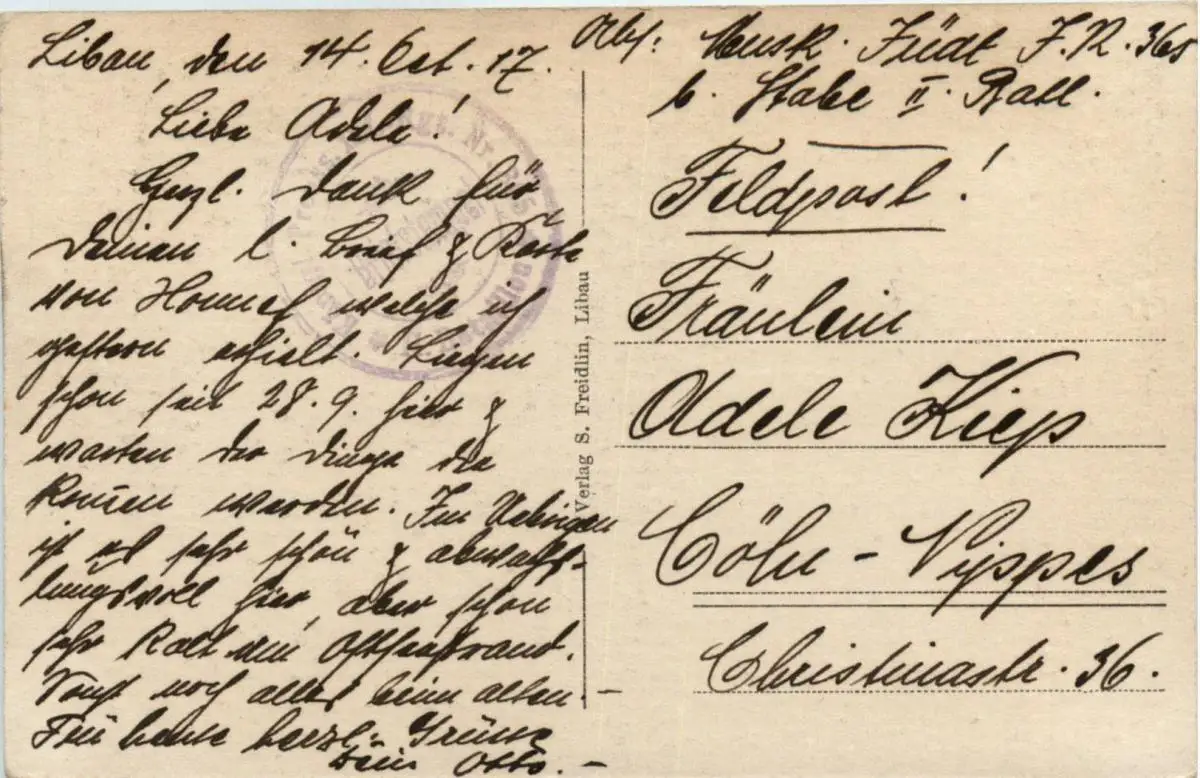 Libau, den 14. Oct. 17.
Liebe Adele!
Herzl. Dank für
Deinen l. Brief & Karte
von Honnef welche ich
gestern erhielt. Liegen
schon seit 28.9. hier &
warten der Dinge die
kommen werden. Im Uebrigen
ist es sehr schön & abwechs-
lungsvoll hier, aber schon
sehr kalt am Ostseestrand.
Sonst noch alles beim alten. -
Für heute herzl. Grüsse
Dein Otto. -
Verlag S. Freidlin, Libau
Abs: Musk. Jüdt J.R. 368
b. Stabe II. Batl.
Feldpost!
Fräulein
Adele Kiep
Cöln - Nippes
Christinastr. 36.